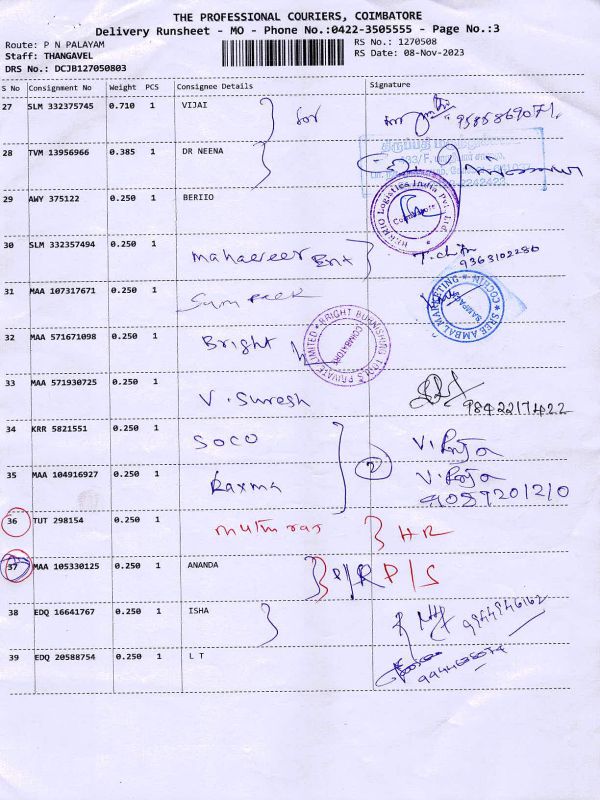 THE PROFESSIONAL COURIERS, COIMBATORE
Delivery Runsheet - MO - Phone No.:0422-3505555 - Page No.:3
Route: P N PALAYAM
RS No.: 1270508
Staff: THANGAVEL
RS Date: 08-Nov-2023
DRS No.: DCJB127050803
S No Consignment No Weight PCS Consignee Details Signature
27 SLM 332375745 0.710 1 VIJAI
28 TVM 13956966 0.385 1 DR NEENA
29 AWY 375122 0.250 1 BERIIO
30 SLM 332357494 0.250 1 Mahaveer Ent 9363102280
31 MAA 107317671 0.250 1 Sum Pack
SREE AMBAL MARKETING COCHIN
32 MAA 571671098 0.250 1 Bright
BRIGHT BURNISHING TOOLS PRIVATE LIMITED COIMBATORE
33 MAA 571930725 0.250 1 V. Suresh 9842217422
34 KRR 5821551 0.250 1 SOCO V. Roja
35 MAA 104916927 0.250 1 Raxma 2 V. Roja
36 TUT 298154 0.250 1 Muthu ras HR
37 MAA 105330125 0.250 1 ANANDA P/S
38 EDQ 16641767 0.250 1 ISHA
39 EDQ 20588754 0.250 1 L T